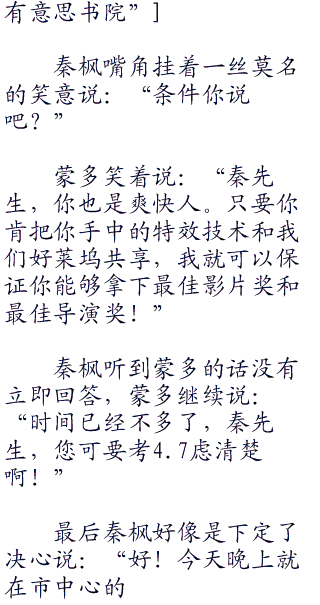 有意思书院”]
秦枫嘴角挂着一丝莫名
的笑意说：“条件你说
吧？”
蒙多笑着说：“秦先
生，你也是爽快人。只要你
肯把你手中的特效技术和我
们好莱坞共享，我就可以保
证你能够拿下最佳影片奖和
最佳导演奖！”
秦枫听到蒙多的话没有
立即回答，蒙多继续说：
“时间已经不多了，秦先
生，您可要考4.7虑清楚
啊！”
最后秦枫好像是下定了
决心说：“好！今天晚上就
在市中心的